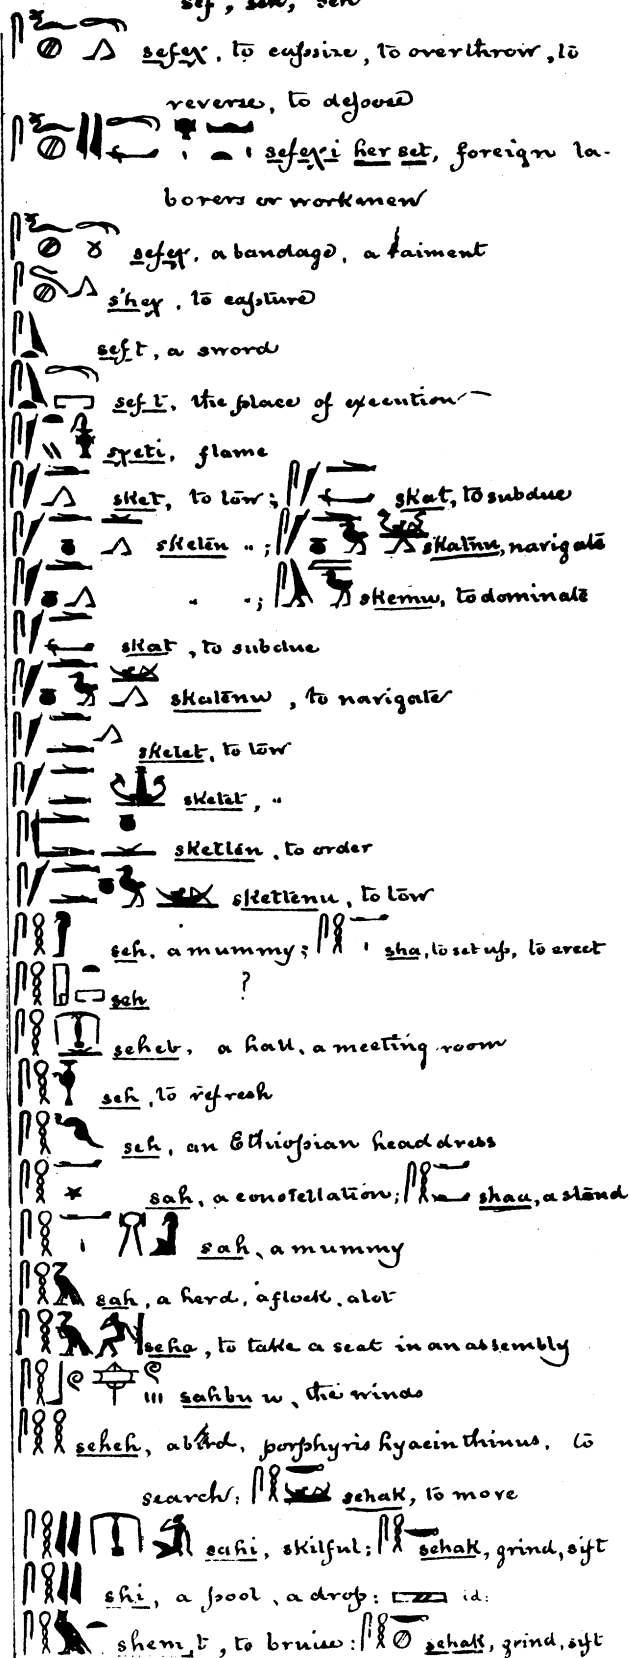 sef, seh, seh
sefeχ, to capsize, to overthrow, to
reverse, to depose
sefeχi her set, foreign la-
borers or workmen
sefeχ, a bandage, a raiment
s'heχ, to capture
seft, a sword
seft, the place of execution
sχeti, flame
sket, to tow; skat, to subdue
sketen "; skatnu, navigate
" "; skemu, to dominate
skat, to subdue
skatenu, to navigate
sketet, to tow
sketet, "
sketten, to order
skettenu, to tow
seh, a mummy; sha, to set up, to erect
seh ?
seheb, a hall, a meeting room
seh, to refresh
seh, an Ethiopian headdress
sah, a constellation; shaa, a stand
sah, a mummy
sah, a herd, a flock, a lot
seha, to take a seat in an assembly
sahbu u, the winds
seheh, a bird, porphyris hyacinthinus, to
search; sehak, to move
sahi, skilful; sehak, grind, sift
shi, a pool, a drop; id:
shem,t, to bruise; sehak, grind, sift